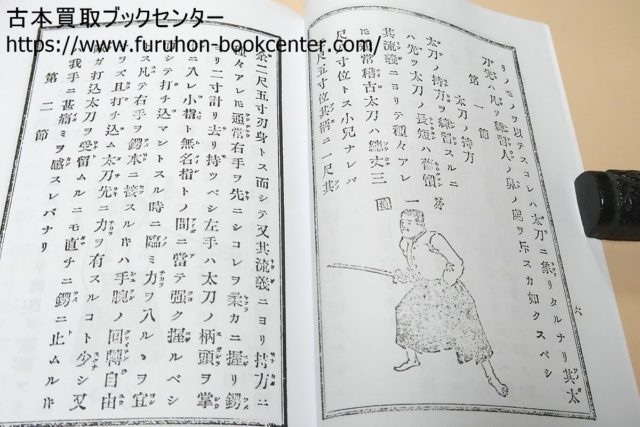 古本買取ブックセンター
https://www.furuhon-bookcenter.com/
リノモノヲ以テスコレハ太刀ニ象リタルナリ其太
刀先ハ凡ソ練習人ノ鼻ノ
スカ如クスベシ
第一節
太刀ノ持方
太刀ノ持方ヲ練習スルニ
ハ先ツ太刀ノ長短ハ舊慣
其流義ニヨリテ種々アレ
尺常稽古太刀ハ總丈三
尺寸位トス小兒ナレバ
尺五寸位其柄ニ一尺其
第一圖
六
餘二尺五寸刃身トス而シテ又其流義ニヨリ持方ニ
種々アレ𪜈通常右手ヲ先ニシコレヲ柔カニ握リ鍔
ヨリ二寸計リ去リ持ツベシ左手ハ太刀ノ柄頭ヲ掌
ニ入レ小指ト無名指トノ間ニ當テ强ク握ルベシ
シテ打チ込マントスル時ニ臨ミ力ヲ入ルヽヲ宜
ス凡テ右手ヲ鍔本ニ接スル片ハ手腕ノ回轉自由
ヲズ且打チ込ム太刀先ニ力ヲ有スルコト少シ又
ガ打込太刀ヲ受留ムルニモ直チニ鍔ニ止ムル片
我手ニ甚痛ミヲ感スレバナリ
第二節